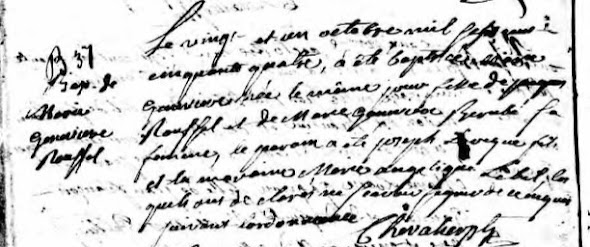 B 37
Bap. de
Marie
Genevieve
Rouffel.
Le vingt et un octobre mil sept cens
cinquante quatre, a été baptisée Marie
Genevieve née le même jour, fille de
Rouffel et de Marie Genevieve
femme, le parain a été joseph
et la maraine Marie Angelique
quels ont déclaré ne scavoir signer de ce enquis
suivant l'ordonnance